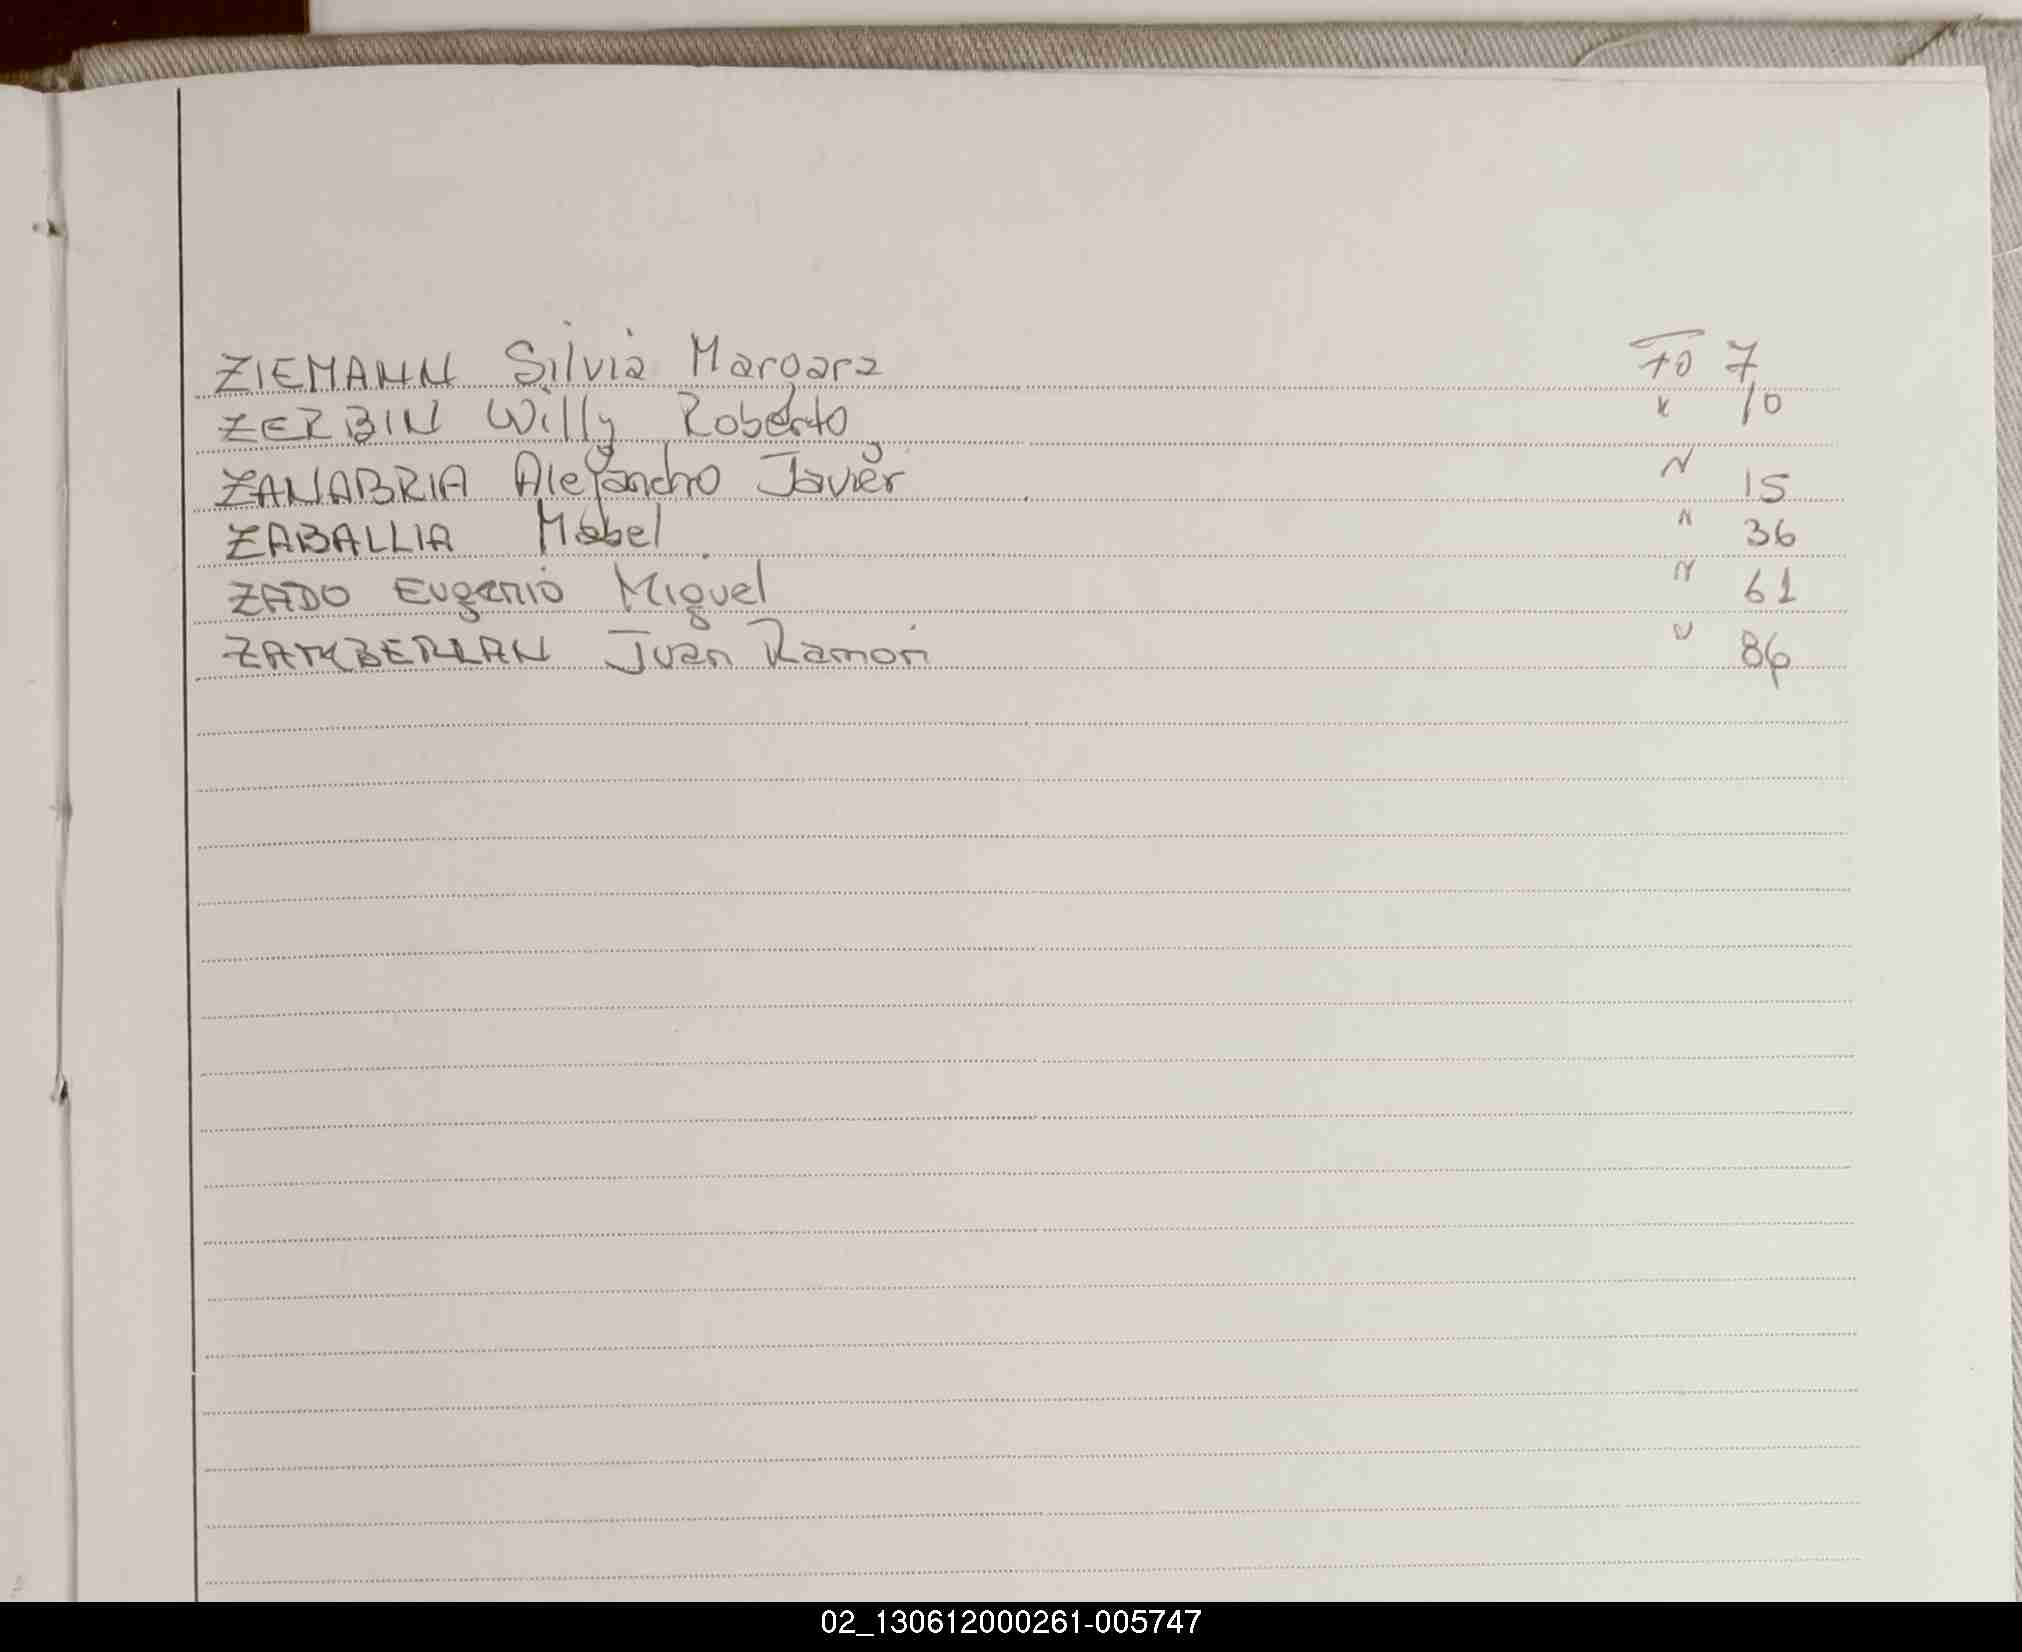 ZIEMANN Silvia Margara Fo 7
ZERBIN Willy Roberto " 10
ZANABRIA Alejandro Javier " 15
ZABALLIA Mabel " 36
ZADO Eugenio Miguel " 61
ZAMBERLAN Juan Ramon " 86
02_130612000261-005747